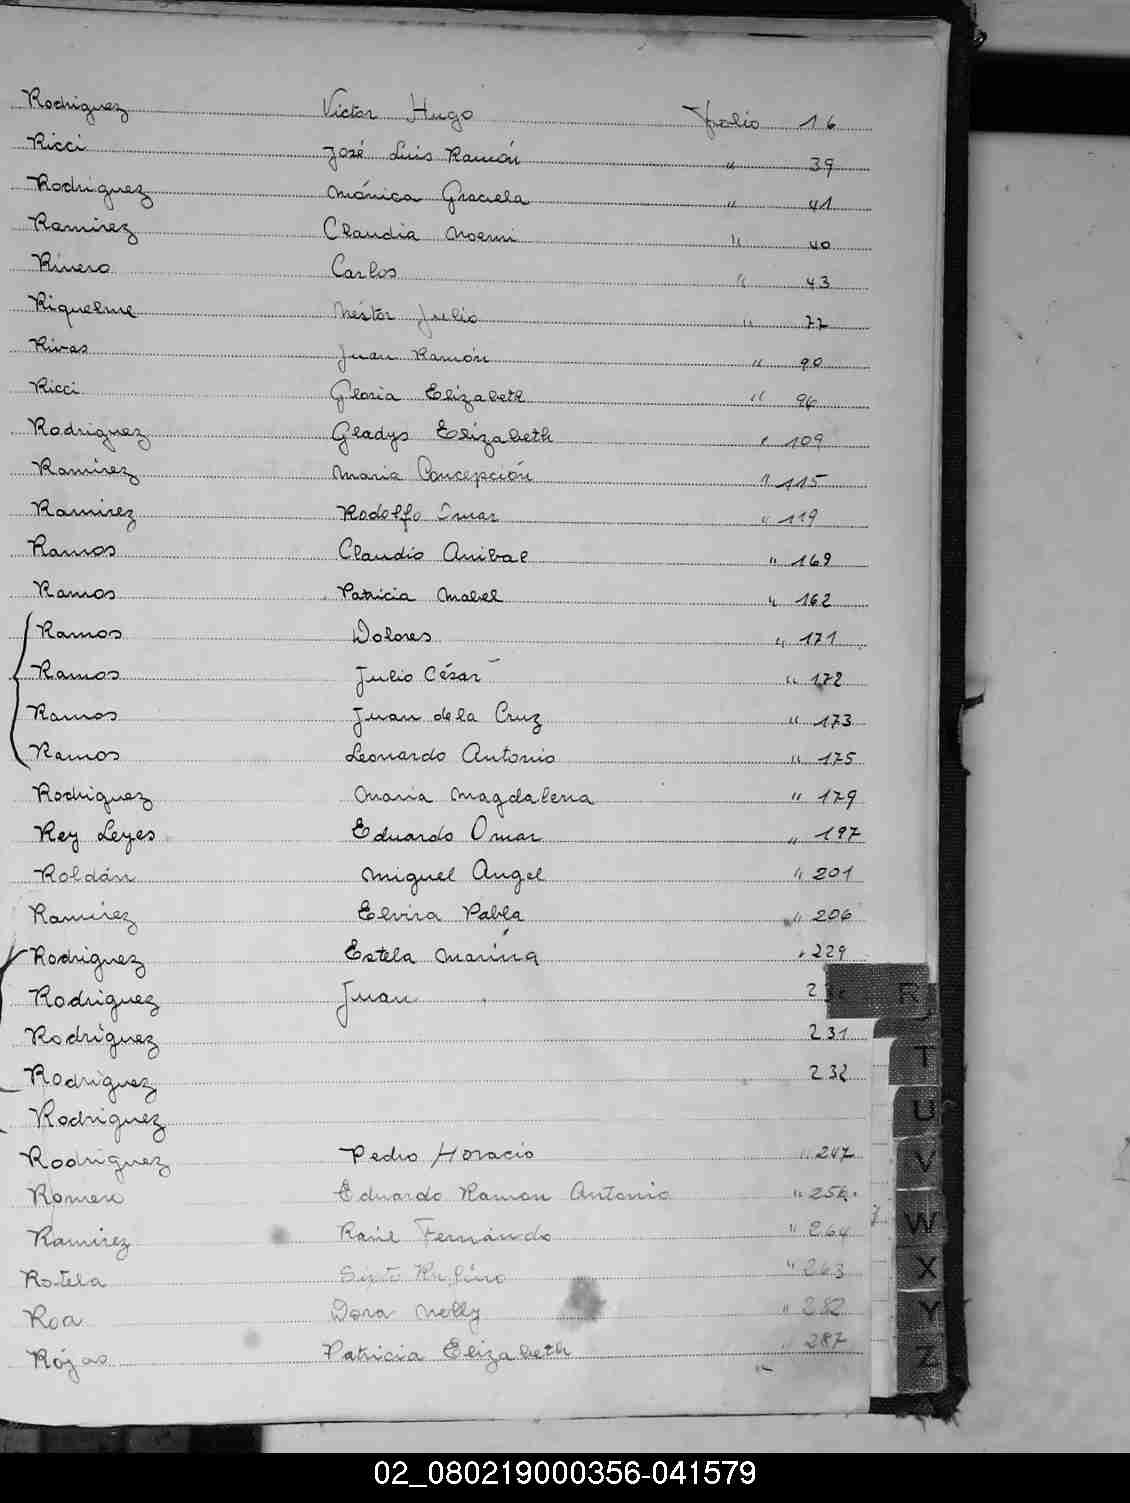 Rodriguez Victor Hugo folio 16
Ricci José Luis Ramón " 39
Rodriguez Mónica Graciela " 41
Ramirez Claudia Noemi " 40
Rivero Carlos " 43
Riquelme Néstor Julio " 77
Rivas Juan Ramón " 90
Ricci Gloria Elizabeth " 96
Rodriguez Gladys Elizabeth " 109
Ramirez Maria Concepción " 115
Ramirez Rodolfo Omar " 119
Ramos Claudio Anibal " 169
Ramos Patricia Mabel " 162
Ramos Dolores " 171
Ramos Julio César " 172
Ramos Juan de la Cruz " 173
Ramos Leonardo Antonio " 175
Rodriguez Maria Magdalena " 179
Rey Leyes Eduardo Omar " 197
Roldán Miguel Angel " 201
Ramirez Elvira Pabla " 206
Rodriguez Estela Marina " 229
Rodriguez Juan
Rodriguez 231
Rodriguez 232
Rodriguez
Rodriguez Pedro Horacio " 247
Romero Eduardo Ramon Antonio "
Ramirez Raúl Fernándo " 264
Rotela Sixto Rufino " 263
Roa Dora Nelly " 282
Rojas Patricia Elizabeth " 287
R
T
U
V
W
X
Y
Z
02_080219000356-041579